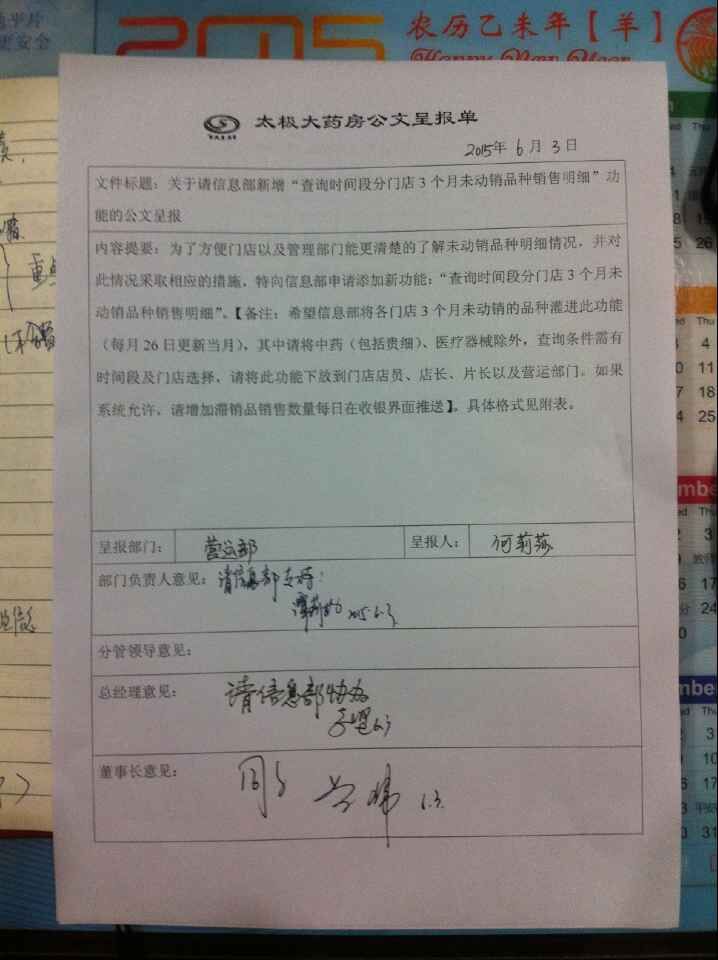 农历乙未年【羊】
太极大药房公文呈报单
2015年 6 月 3 日
文件标题：关于请信息部新增“查询时间段分门店3个月未动销品种销售明细”功
能的公文呈报
内容提要：为了方便门店以及管理部门能更清楚的了解未动销品种明细情况，并对
此情况采取相应的措施，特向信息部申请添加新功能：“查询时间段分门店3个月未
动销品种销售明细”。【备注：希望信息部将各门店3个月未动销的品种灌进此功能
（每月26日更新当月），其中请将中药（包括贵细）、医疗器械除外，查询条件需有
时间段及门店选择，请将此功能下放到门店店员、店长、片长以及营运部门。如果
系统允许，请增加滞销品销售数量每日在收银界面推送】。具体格式见附表。
呈报部门： 营运部 呈报人： 何莉莎
部门负责人意见：请信息部支持！
2015.6.3
分管领导意见：
总经理意见： 请信息部协办
6.3
董事长意见： 同意
6.3